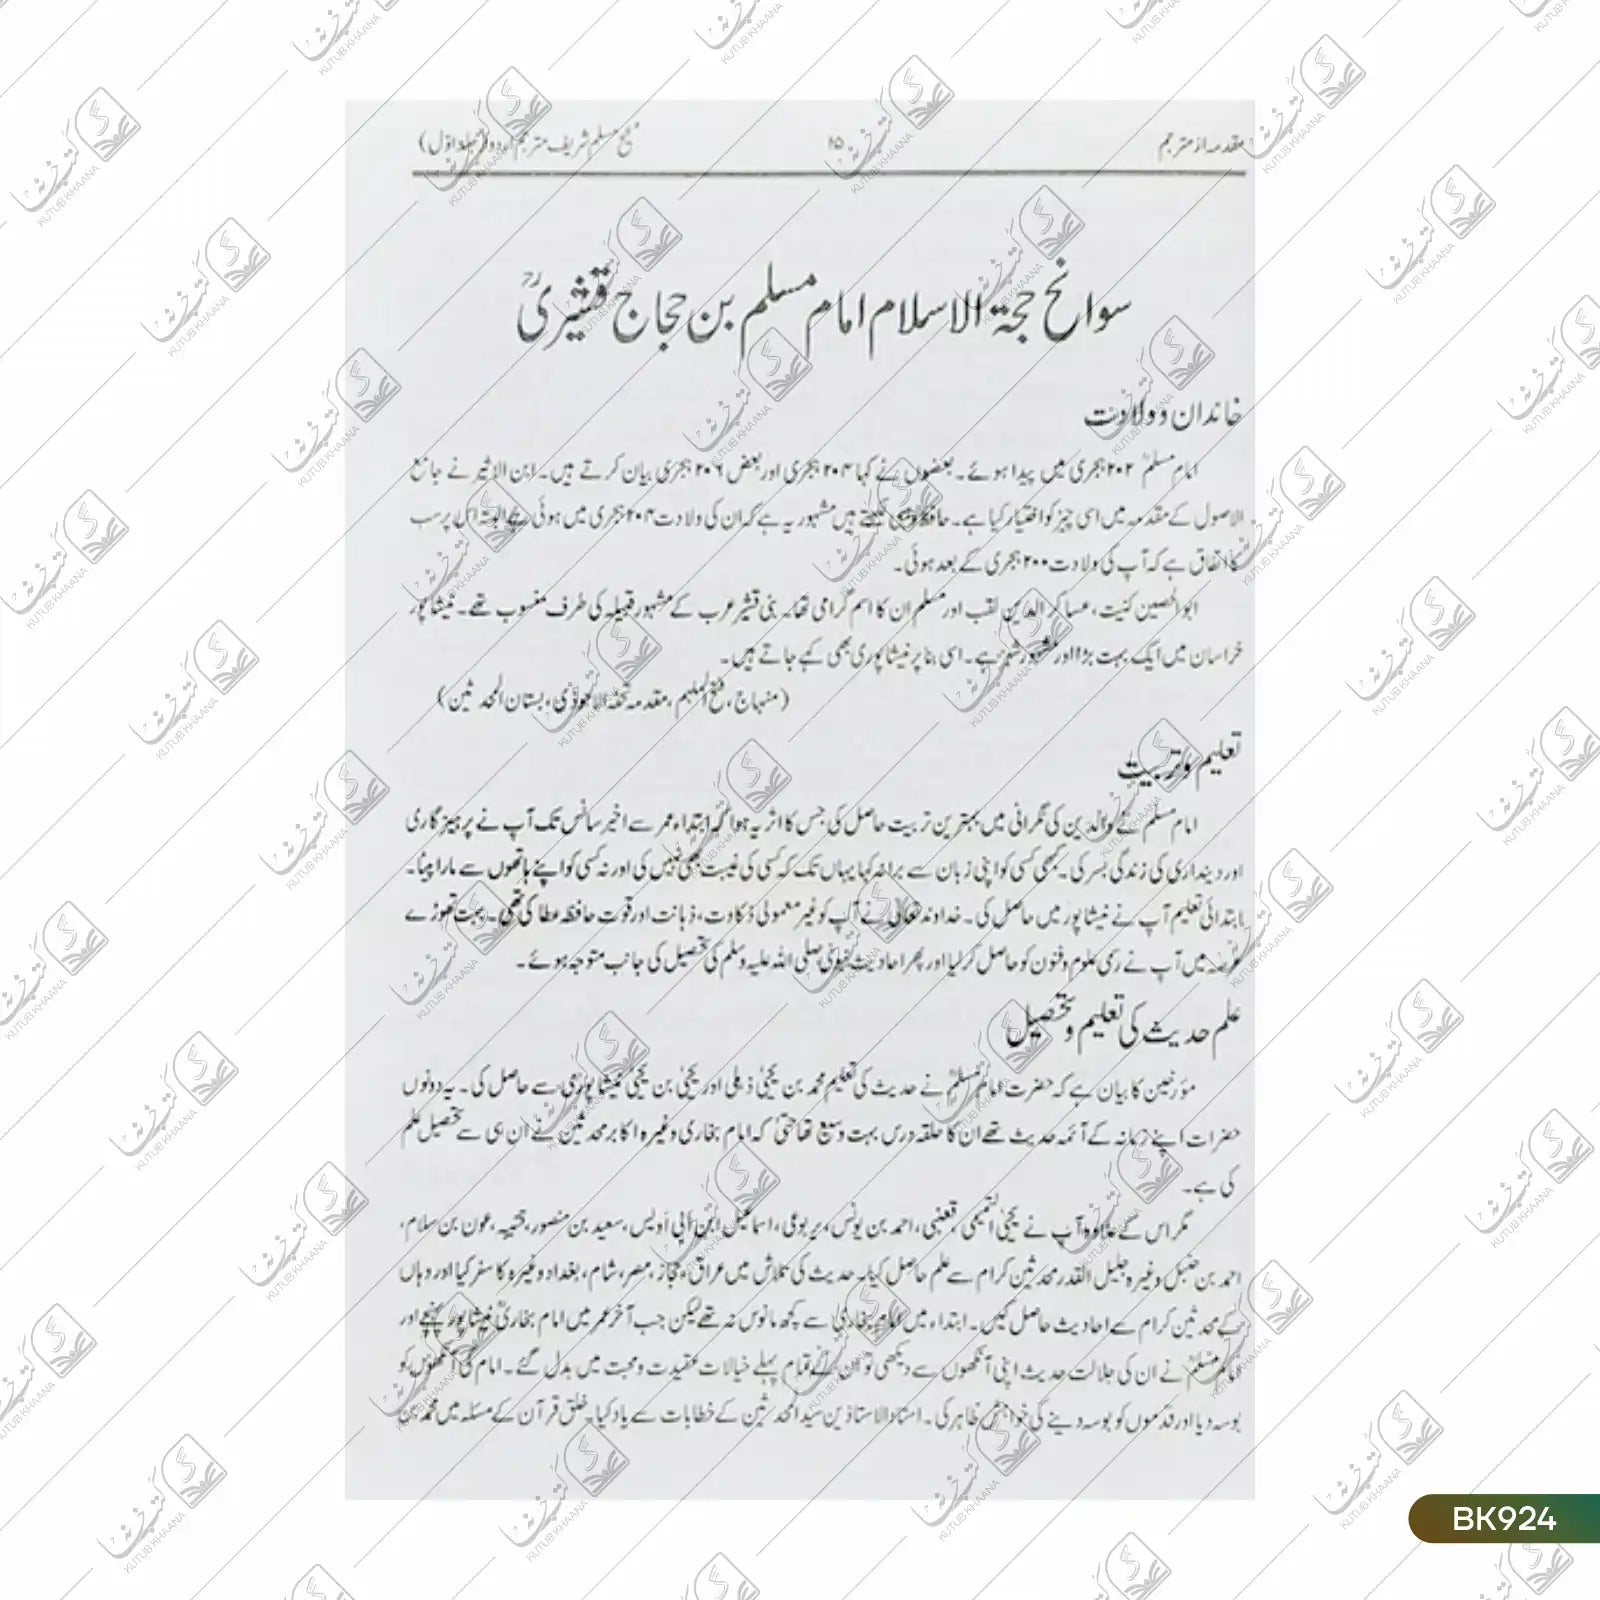 مقدمہ از مترجم ۱۵ صحیح مسلم شریف مترجم اردو (جلد اول)
سوانح حجۃ الاسلام امام مسلم بن حجاج قشیریؒ
خاندان و ولادت
امام مسلمؒ ۲۰۲ ہجری میں پیدا ہوئے۔ بعضوں نے کہا ۲۰۴ ہجری اور بعض ۲۰۶ ہجری بیان کرتے ہیں۔ ابن الاثیر نے جامع
الاصول کے مقدمہ میں اسی چیز کو اختیار کیا ہے۔ حافظ ذہبی لکھتے ہیں مشہور یہ ہے کہ ان کی ولادت ۲۰۴ ہجری میں ہوئی ہے البتہ اس پر سب
کا اتفاق ہے کہ آپ کی ولادت ۲۰۰ ہجری کے بعد ہوئی۔
ابوالحسین کنیت، عساکر الدین لقب اور مسلم ان کا اسم گرامی تھا۔ بنی قشیر عرب کے مشہور قبیلہ کی طرف منسوب تھے۔ نیشاپور
خراسان میں ایک بہت بڑا اور مشہور شہر ہے۔ اسی بنا پر نیشاپوری بھی کہے جاتے ہیں۔
(منہاج، فتح الملہم، مقدمہ تحفۃ الاحوذی، بستان المحدثین)
تعلیم و تربیت
امام مسلم نے والدین کی نگرانی میں بہترین تربیت حاصل کی جس کا اثر یہ ہوا کہ ابتداء عمر سے اخیر سانس تک آپ نے پرہیز گاری
اور دینداری کی زندگی بسر کی۔ کبھی کسی کو اپنی زبان سے برا نہ کہا یہاں تک کہ کسی کی غیبت بھی نہیں کی اور نہ کسی کو اپنے ہاتھوں سے مارا پیٹا۔
ابتدائی تعلیم آپ نے نیشاپور میں حاصل کی۔ خداوند تعالیٰ نے آپ کو غیر معمولی ذکاوت، ذہانت اور قوت حافظہ عطا کی تھی۔ بہت تھوڑے
عرصہ میں آپ نے رسمی علوم و فنون کو حاصل کر لیا اور پھر احادیث نبوی صلی اللہ علیہ وسلم کی تحصیل کی جانب متوجہ ہوئے۔
علم حدیث کی تعلیم و تحصیل
مؤرخین کا بیان ہے کہ حضرت امام مسلمؒ نے حدیث کی تعلیم محمد بن یحییٰ ذہلی اور یحییٰ بن یحییٰ نیشاپوری سے حاصل کی۔ یہ دونوں
حضرات اپنے زمانہ کے آئمہ حدیث تھے ان کا حلقہ درس بہت وسیع تھا حتیٰ کہ امام بخاری وغیرہ اکابر محدثین نے ان ہی سے تحصیل علم
کی ہے۔
مگر اس کے علاوہ آپ نے یحییٰ التمیمی، قعنبی، احمد بن یونس، یربوعی، اسماعیل ابن ابی اویس، سعید بن منصور، قتیبہ، عون بن سلام،
احمد بن حنبل وغیرہ جلیل القدر محدثین کرام سے علم حاصل کیا۔ حدیث کی تلاش میں عراق، حجاز، مصر، شام، بغداد وغیرہ کا سفر کیا اور وہاں
کے محدثین کرام سے احادیث حاصل کیں۔ ابتداء میں امام بخاری سے کچھ مانوس نہ تھے لیکن جب آخر عمر میں امام بخاریؒ نیشاپور پہنچے اور
امام مسلمؒ نے ان کی جلالت حدیث اپنی آنکھوں سے دیکھی تو ان کے تمام پہلے خیالات عقیدت و محبت میں بدل گئے۔ امام کی آنکھوں کو
بوسہ دیا اور قدموں کو بوسہ دینے کی خواہش ظاہر کی۔ استاذ الاستاذین سید المحدثین کے خطابات سے یاد کیا۔ خلق قرآن کے مسئلہ میں محمد بن
BK924
کتب خانہ
KUTUB KHAANA